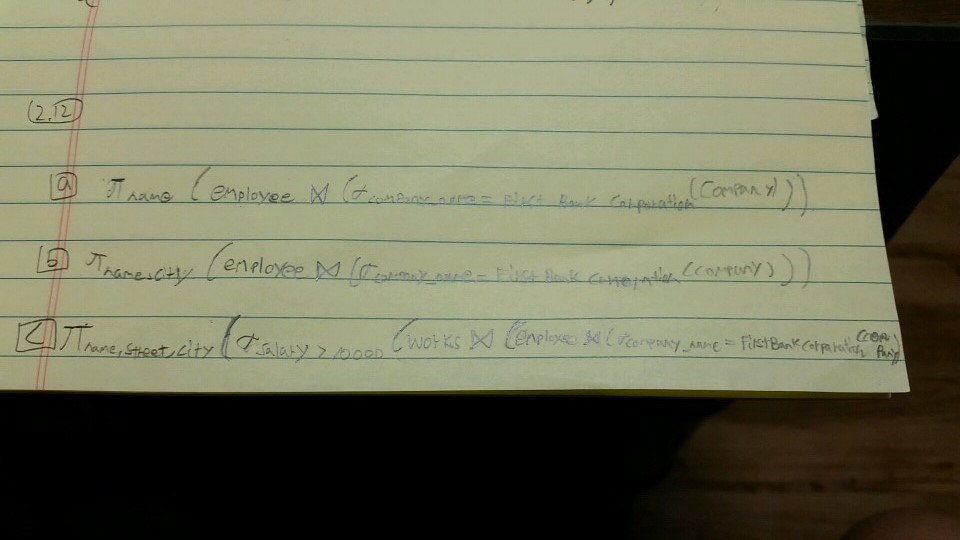 2.12
a π name (employee ⋈ (σ company_name = First Bank Corporation (Company)))
b π name,city (employee ⋈ (σ company_name = First Bank Corporation (company)))
c π name, street, city (σ salary > 10000 (works ⋈ (Employee ⋈ (σ company_name = First Bank Corporation (company)